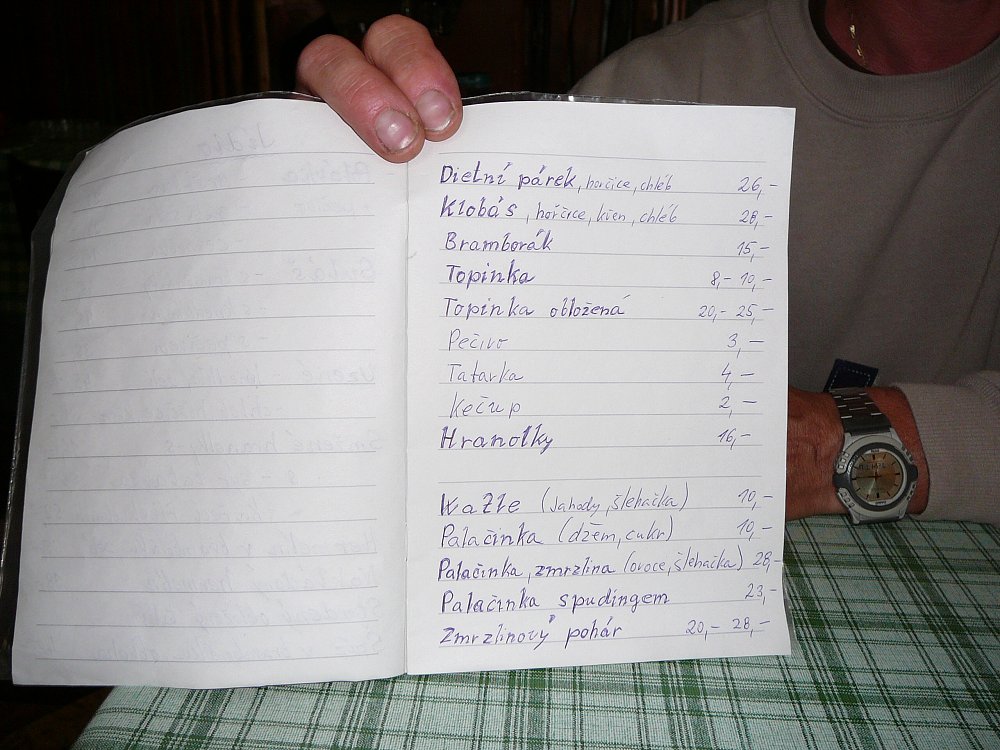 Dietní párek, hořčice, chléb 26,-
Klobás, hořčice, křen, chléb 28,-
Bramborák 15,-
Topinka 8,- 10,-
Topinka obložená 20,- 25,-
Pečivo 3,-
Tatarka 4,-
Kečup 2,-
Hranolky 16,-
Wafle (Jahody, šlehačka) 10,-
Palačinka (džem, cukr) 10,-
Palačinka, zmrzlina (ovoce, šlehačka) 28,-
Palačinka s pudingem 23,-
Zmrzlinový pohár 20,- 28,-